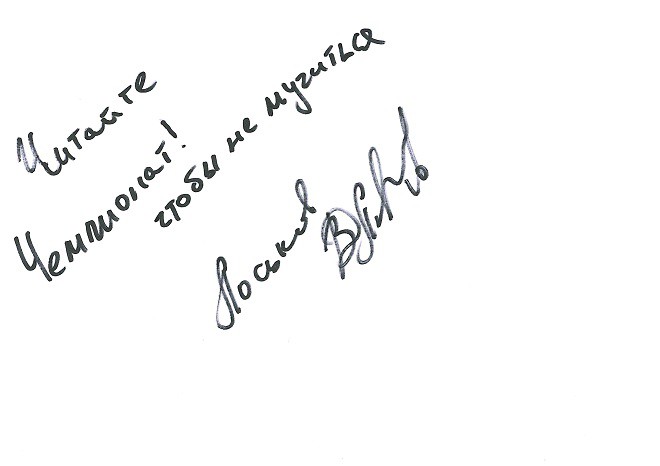 Читайте
Чемпионат!
чтобы не мучиться
Лоськов